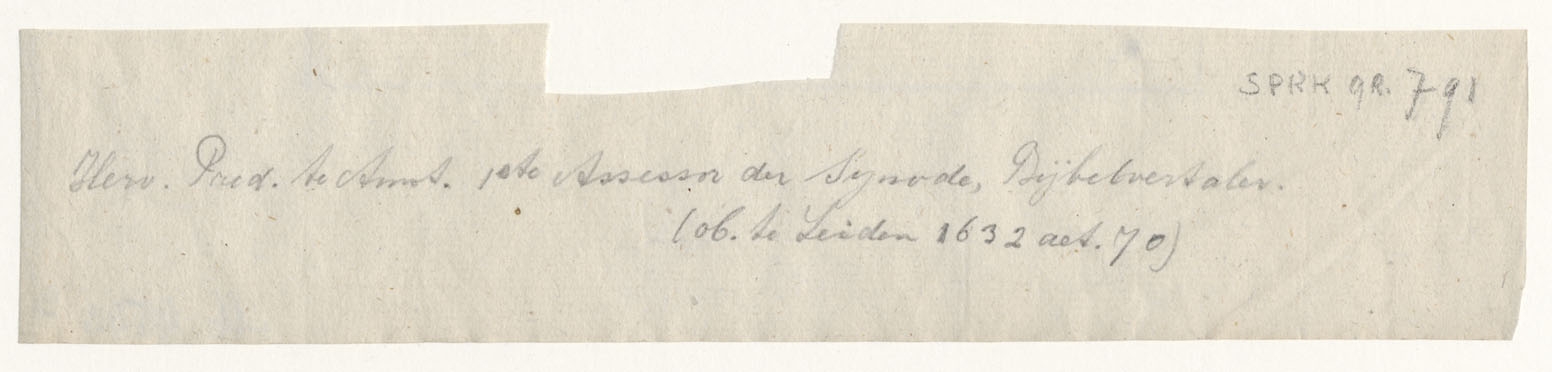 SPKK gR. 791
Herv. Pred. te Amst. 1ste Assessor der Synode, Bijbelvertaler.
(ob. te Leiden 1632 aet. 70)